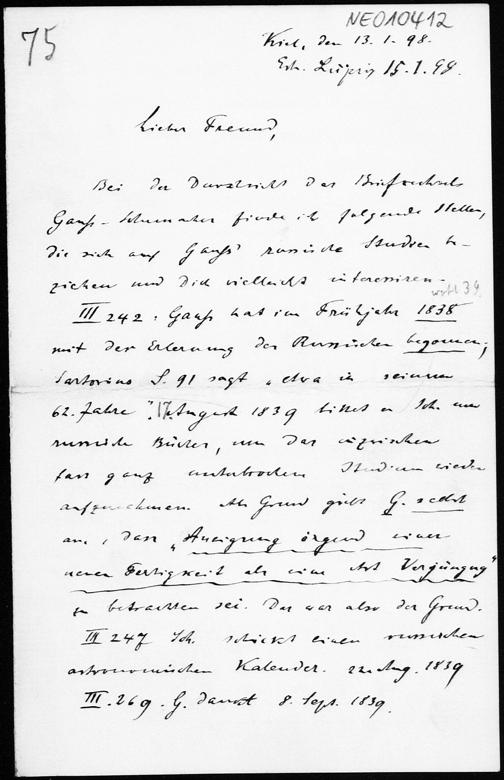 75
NEO10412
Kiel, den 13. 1. 98.
Erh. Leipzig 15. 1. 98.
Lieber Freund,
Bei der Durchsicht des Briefwechsels
Gauß-Schumacher finde ich folgende Stellen,
die sich auf Gauß' russische Studien be-
ziehen und Dich vielleicht interessiren.
III 242: Gauß hat im Frühjahr 1838
mit der Erlernung des Russischen begonnen;
Sartorius S. 91 sagt „etwa in seinem
62. Jahre". 17. August 1839 bittet er Sch. um
russische Bücher, um das inzwischen
fast ganz unterbrochene Studium wieder
aufzunehmen. Als Grund giebt G. selbst
an, dass „Aneignung irgend einer
neuen Fertigkeit als eine Art Verjüngung"
zu betrachten sei. Das war also der Grund.
III 247 Sch. schickt einen russischen
astronomischen Kalender. 22. Aug. 1839
III. 269. G. dankt 8. Sept. 1839.